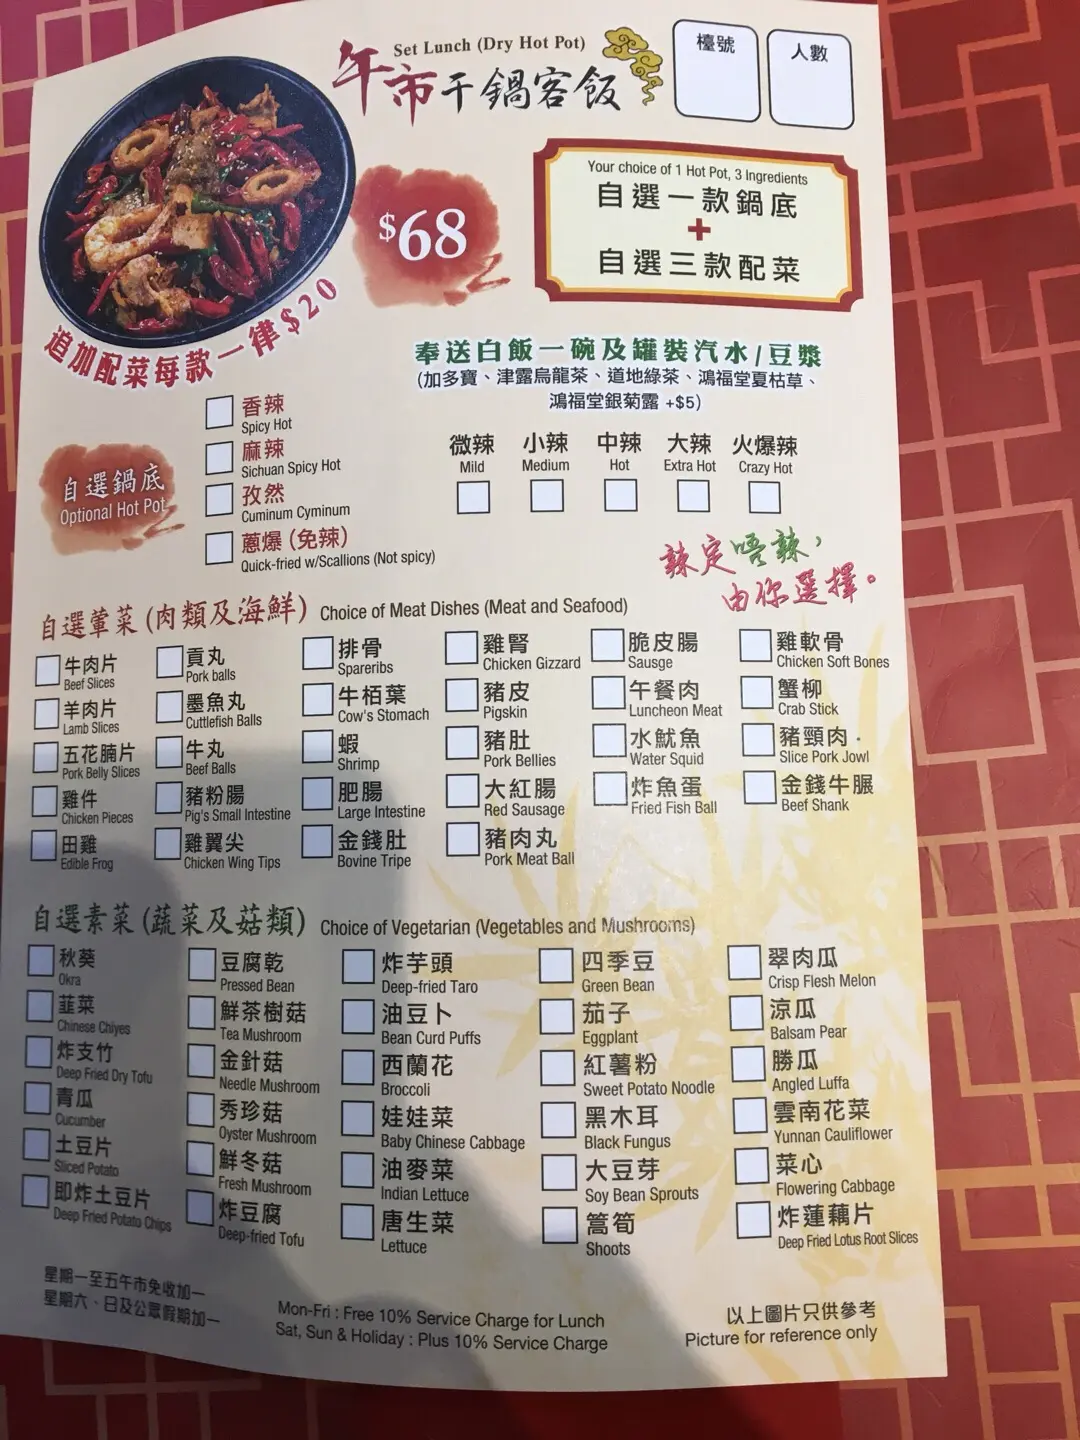 Set Lunch (Dry Hot Pot)
午市干鍋客飯
檯號
人數
$68
Your choice of 1 Hot Pot, 3 Ingredients
自選一款鍋底
+
自選三款配菜
追加配菜每款一律$20
奉送白飯一碗及罐裝汽水/豆漿
(加多寶、津露烏龍茶、道地綠茶、鴻福堂夏枯草、
鴻福堂銀菊露 +$5)
自選鍋底
Optional Hot Pot
香辣
Spicy Hot
麻辣
Sichuan Spicy Hot
孜然
Cuminum Cyminum
蔥爆 (免辣)
Quick-fried w/Scallions (Not spicy)
微辣 小辣 中辣 大辣 火爆辣
Mild Medium Hot Extra Hot Crazy Hot
辣定唔辣，
由你選擇。
自選葷菜 (肉類及海鮮) Choice of Meat Dishes (Meat and Seafood)
牛肉片
Beef Slices
羊肉片
Lamb Slices
五花腩片
Pork Belly Slices
雞件
Chicken Pieces
田雞
Edible Frog
貢丸
Pork balls
墨魚丸
Cuttlefish Balls
牛丸
Beef Balls
豬粉腸
Pig's Small Intestine
雞翼尖
Chicken Wing Tips
排骨
Spareribs
牛栢葉
Cow's Stomach
蝦
Shrimp
肥腸
Large Intestine
金錢肚
Bovine Tripe
雞腎
Chicken Gizzard
豬皮
Pigskin
豬肚
Pork Bellies
大紅腸
Red Sausage
豬肉丸
Pork Meat Ball
脆皮腸
Sausge
午餐肉
Luncheon Meat
水魷魚
Water Squid
炸魚蛋
Fried Fish Ball
雞軟骨
Chicken Soft Bones
蟹柳
Crab Stick
豬頸肉
Slice Pork Jowl
金錢牛𦟌
Beef Shank
自選素菜 (蔬菜及菇類) Choice of Vegetarian (Vegetables and Mushrooms)
秋葵
Okra
韮菜
Chinese Chiyes
炸支竹
Deep Fried Dry Tofu
青瓜
Cucumber
土豆片
Sliced Potato
即炸土豆片
Deep Fried Potato Chips
豆腐乾
Pressed Bean
鮮茶樹菇
Tea Mushroom
金針菇
Needle Mushroom
秀珍菇
Oyster Mushroom
鮮冬菇
Fresh Mushroom
炸豆腐
Deep-fried Tofu
炸芋頭
Deep-fried Taro
油豆卜
Bean Curd Puffs
西蘭花
Broccoli
娃娃菜
Baby Chinese Cabbage
油麥菜
Indian Lettuce
唐生菜
Lettuce
四季豆
Green Bean
茄子
Eggplant
紅薯粉
Sweet Potato Noodle
黑木耳
Black Fungus
大豆芽
Soy Bean Sprouts
篙筍
Shoots
翠肉瓜
Crisp Flesh Melon
涼瓜
Balsam Pear
勝瓜
Angled Luffa
雲南花菜
Yunnan Cauliflower
菜心
Flowering Cabbage
炸蓮藕片
Deep Fried Lotus Root Slices
星期一至五午市免收加一
星期六、日及公眾假期加一
Mon-Fri : Free 10% Service Charge for Lunch
Sat, Sun & Holiday : Plus 10% Service Charge
以上圖片只供參考
Picture for reference only